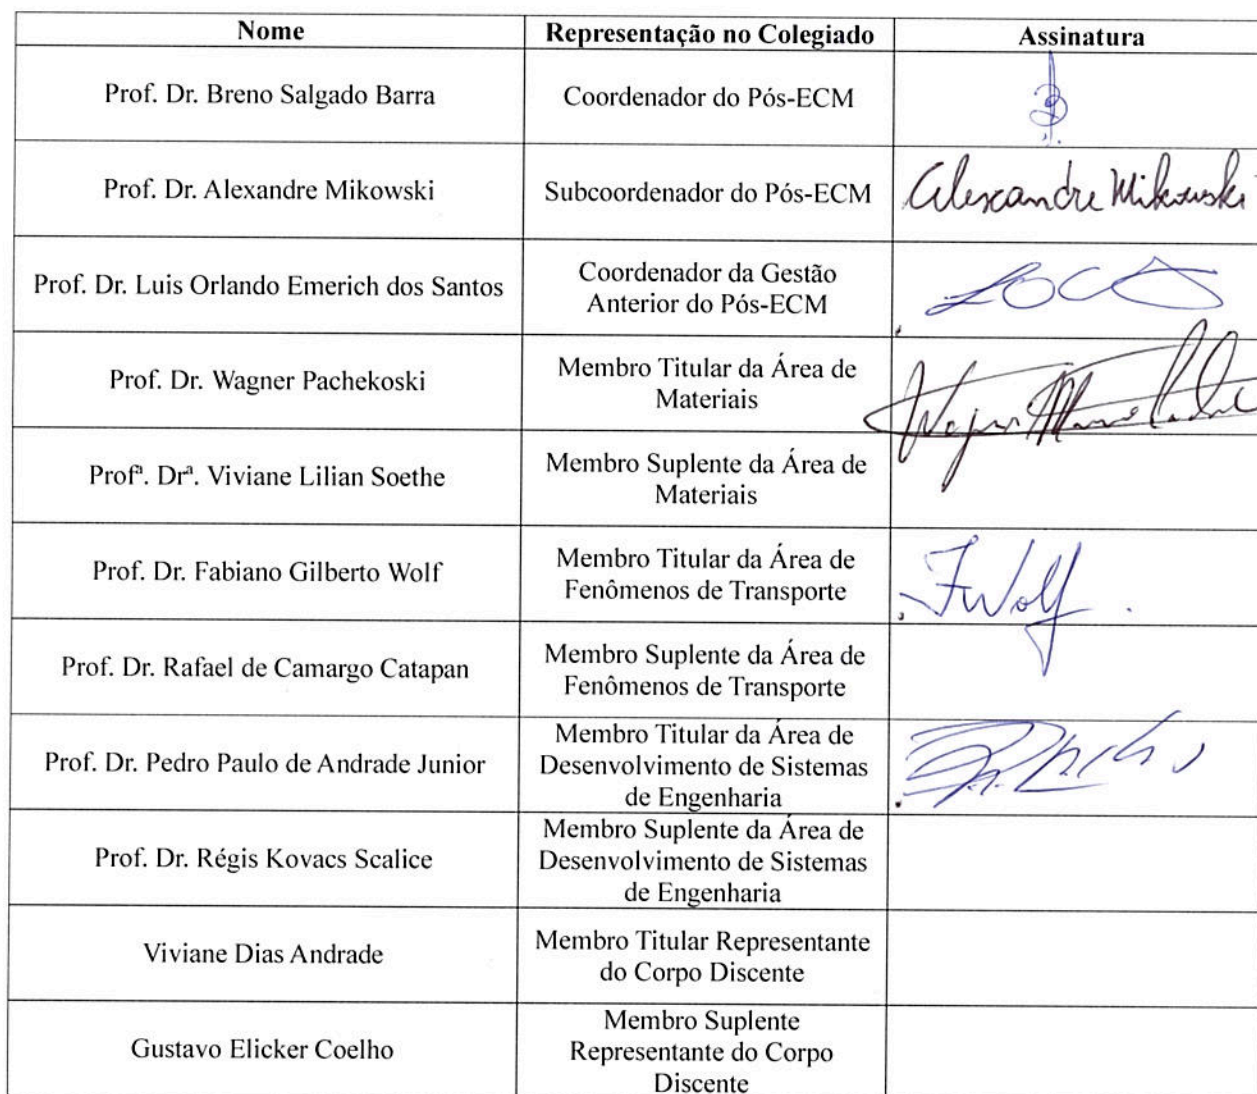 Nome Representação no Colegiado Assinatura
Prof. Dr. Breno Salgado Barra Coordenador do Pós-ECM
Prof. Dr. Alexandre Mikowski Subcoordenador do Pós-ECM Alexandre Mikowski
Prof. Dr. Luis Orlando Emerich dos Santos Coordenador da Gestão
Anterior do Pós-ECM
Prof. Dr. Wagner Pachekoski Membro Titular da Área de
Materiais
Wagner
Profª. Drª. Viviane Lilian Soethe Membro Suplente da Área de
Materiais
Prof. Dr. Fabiano Gilberto Wolf Membro Titular da Área de
Fenômenos de Transporte
FWolf
Prof. Dr. Rafael de Camargo Catapan Membro Suplente da Área de
Fenômenos de Transporte
Prof. Dr. Pedro Paulo de Andrade Junior Membro Titular da Área de
Desenvolvimento de Sistemas
de Engenharia
Prof. Dr. Régis Kovacs Scalice Membro Suplente da Área de
Desenvolvimento de Sistemas
de Engenharia
Viviane Dias Andrade Membro Titular Representante
do Corpo Discente
Gustavo Elicker Coelho Membro Suplente
Representante do Corpo
Discente